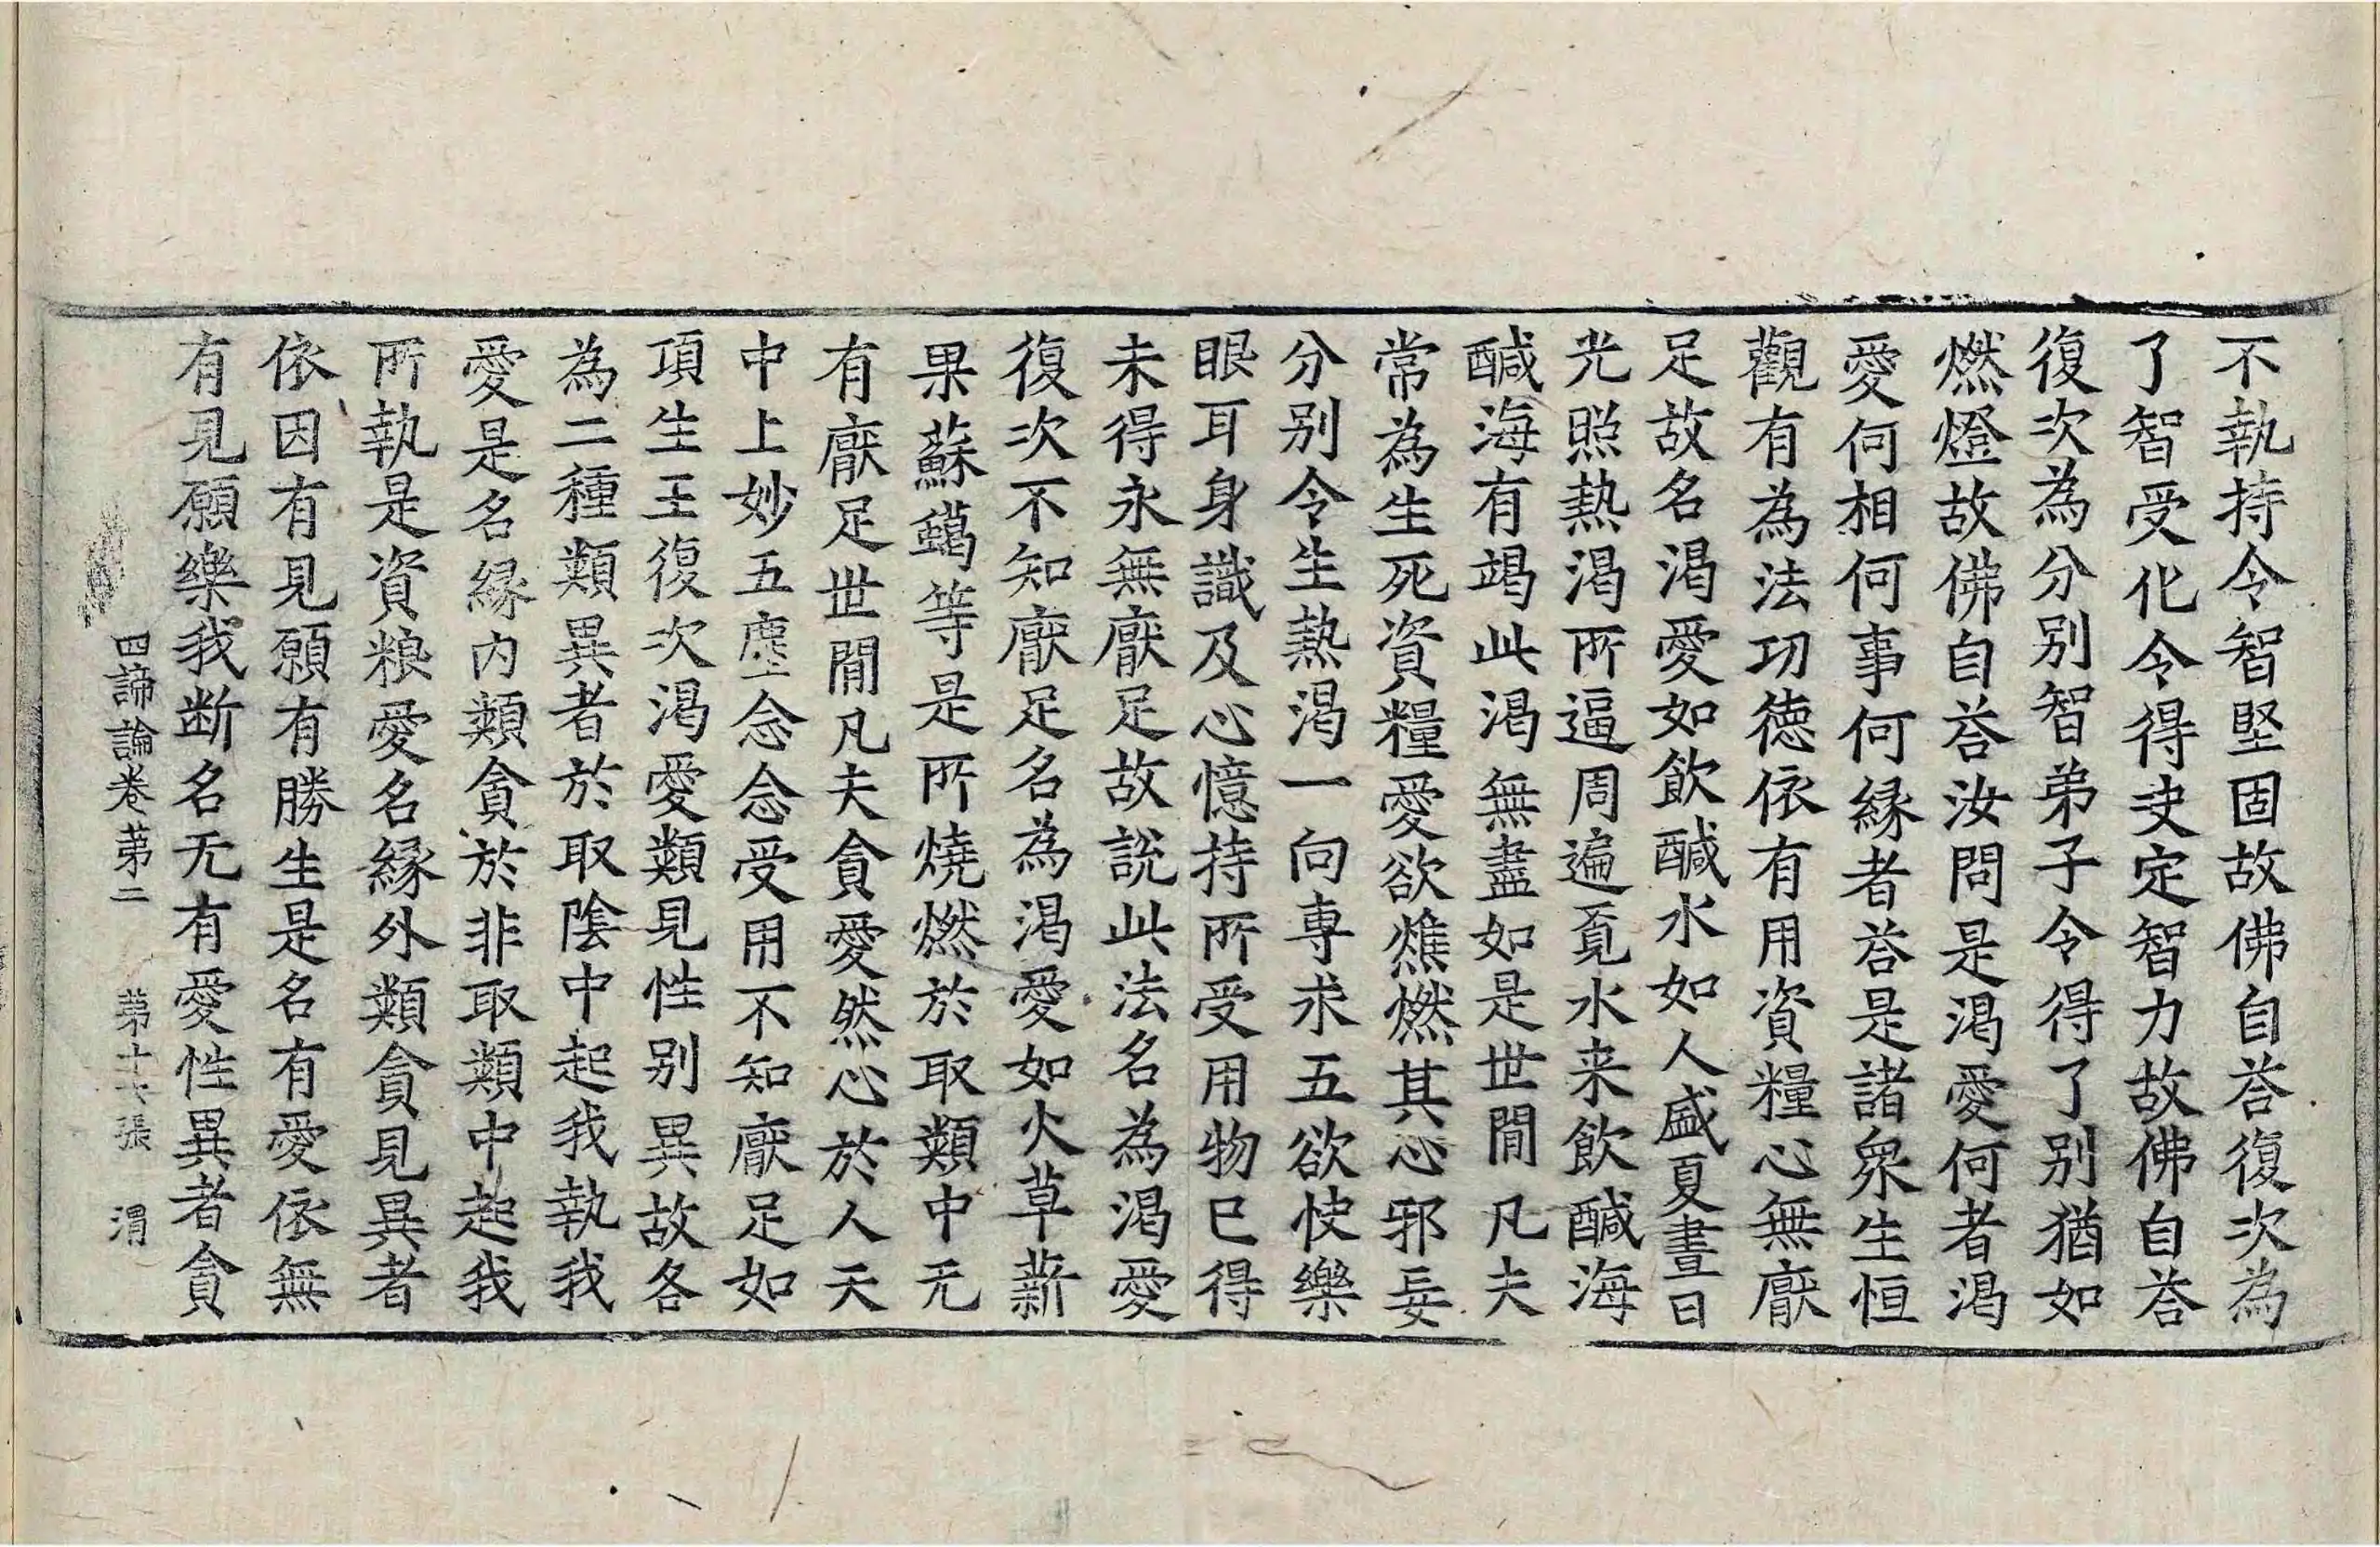 不執持令智堅固故佛自荅復次為
了智受化令得决定智力故佛自荅
復次為分別智弟子令得了別猶如
燃燈故佛自荅汝問是渴愛何者渴
愛何相何事何緣者荅是諸衆生恒
觀有為法功德依有用資糧心無厭
足故名渴愛如飲醎水如人盛夏晝日
光照熱渴所逼周遍覓水来飲醎海
醎海有竭此渴無盡如是世閒凡夫
常為生死資糧愛欲燋燃其心邪妄
分別令生熱渴一向專求五欲快樂
眼耳身識及心憶持所受用物已得
未得永無厭足故說此法名為渴愛
復次不知厭足名為渴愛如火草薪
果蘇等是所燒燃於取類中无
有厭足世閒凡夫貪愛然心於人天
中上妙五塵念念受用不知厭足如
頂生王復次渴愛類見性別異故各
為二種類異者於取陰中起我執我
愛是名緣內類貪於非取類中起我
所執是資粮愛名緣外類貪見異者
依因有見願有勝生是名有愛依無
有見願樂我断名无有愛性異者貪
四諦論卷第二 第十六張 渭